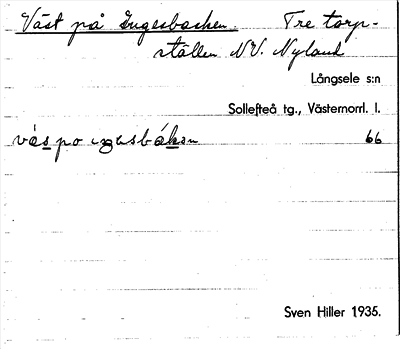 Väst på Ingesbacken. Tre torp-
ställen NV. Nyland
Långsele s:n
Sollefteå tg., Västernorrl. l.
66
Sven Hiller 1935.